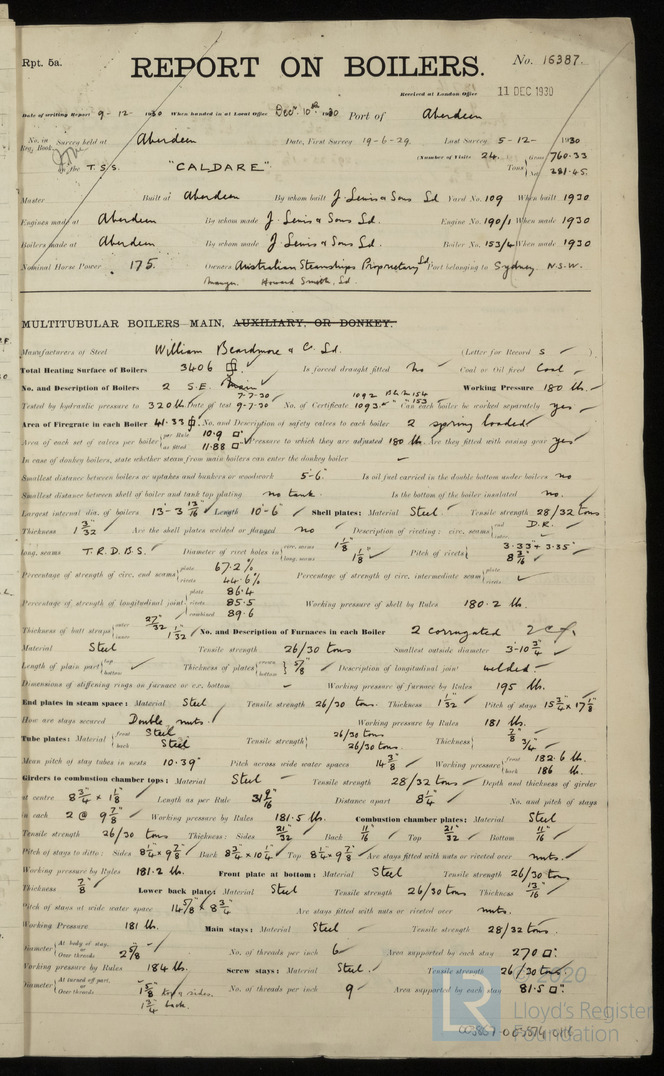 Rpt. 5a.
REPORT ON BOILERS.
No. 16387.
Received at London Office 11 DEC 1930
Date of writing Report 9-12-1930 When handed in at Local Office Decr 10th 1930 Port of Aberdeen
No. in Reg. Book. Survey held at Aberdeen Date, First Survey 19-6-29. Last Survey 5-12-1930
on the T.S.S. "CALDARE" (Number of Visits 24.) Tons Gross 760.33 Net 281.45
Master Built at Aberdeen By whom built J. Lewis & Sons Ld Yard No. 109 When built 1930
Engines made at Aberdeen By whom made J. Lewis & Sons Ld. Engine No. 190/1 When made 1930
Boilers made at Aberdeen By whom made J. Lewis & Sons Ld. Boiler No. 153/4 When made 1930
Nominal Horse Power 175. Owners Australian Steamships Proprietary Ld Port belonging to Sydney N.S.W.
Howard Smith, Ld
MULTITUBULAR BOILERS MAIN, AUXILIARY, OR DONKEY.
Manufacturers of Steel William Beardmore & Co. Ld. (Letter for Record S)
Total Heating Surface of Boilers 3406 Is forced draught fitted No Coal or Oil fired Coal
No. and Description of Boilers 2 S.E. Main Working Pressure 180 lb.
Tested by hydraulic pressure to 320 lb. Date of test 7-7-30 9-7-30 No. of Certificate 1092 1093 Can each boiler be worked separately yes
Area of Firegrate in each Boiler 41.33 No. and Description of safety valves to each boiler 2 spring loaded
Area of each set of valves per boiler per Rule 10.9 as fitted 11.88 Pressure to which they are adjusted 180 lb. Are they fitted with easing gear yes
In case of donkey boilers, state whether steam from main boilers can enter the donkey boiler
Smallest distance between boilers or uptakes and bunkers or woodwork 5-6 Is oil fuel carried in the double bottom under boilers no
Smallest distance between shell of boiler and tank top plating no tank. Is the bottom of the boiler insulated no.
Largest internal dia. of boilers 13-3 13/16 Length 10-6 Shell plates: Material Steel Tensile strength 28/32 tons
Thickness 1 3/32 Are the shell plates welded or flanged no Description of riveting: circ. seams end D.R.
long. seams T.R.D.B.S. Diameter of rivet holes in circ. seams 1 1/8 long. seams 1 1/8 Pitch of rivets 3.33 & 3.35 8 3/16
Percentage of strength of circ. end seams plate 67.2% rivets 44.6% Percentage of strength of circ. intermediate seam plate rivets
Percentage of strength of longitudinal joint plate 86.4 rivets 85.5 combined 89.6 Working pressure of shell by Rules 180.2 lb.
Thickness of butt straps outer 27/32 inner 1 1/32 No. and Description of Furnaces in each Boiler 2 corrugated
Material Steel Tensile strength 26/30 tons Smallest outside diameter 3-10 3/4
Length of plain part top bottom Thickness of plates crown bottom 5/8 Description of longitudinal joint welded
Dimensions of stiffening rings on furnace or c.c. bottom Working pressure of furnace by Rules 195 lb.
End plates in steam space: Material Steel Tensile strength 26/30 tons Thickness 1 1/32 Pitch of stays 15 3/4 x 17 7/8
How are stays secured Double nuts. Working pressure by Rules 181 lb.
Tube plates: Material front Steel back Steel Tensile strength 26/30 tons 26/30 tons. Thickness 7/8 3/4
Mean pitch of stay tubes in nests 10.39" Pitch across wide water spaces 14 3/8 Working pressure front 182.6 lb. back 186 lb.
Girders to combustion chamber tops: Material Steel Tensile strength 28/32 tons Depth and thickness of girder
at centre 8 3/4 x 1 1/8 Length as per Rule 31 9/16 Distance apart 8 1/4 No. and pitch of stays
in each 2 @ 9 7/8 Working pressure by Rules 181.5 lb. Combustion chamber plates: Material Steel
Tensile strength 26/30 tons Thickness: Sides 21/32 Back 11/16 Top 21/32 Bottom 11/16
Pitch of stays to ditto: Sides 8 1/4 x 9 7/8 Back 8 3/4 x 10 1/4 Top 8 1/4 x 9 7/8 Are stays fitted with nuts or riveted over nuts.
Working pressure by Rules 181.2 lb. Front plate at bottom: Material Steel Tensile strength 26/30 tons
Thickness 7/8 Lower back plate: Material Steel Tensile strength 26/30 tons Thickness 13/16
Pitch of stays at wide water space 14 5/8 x 8 3/4 Are stays fitted with nuts or riveted over nuts.
Working Pressure 181 lb. Main stays: Material Steel Tensile strength 28/32 tons.
Diameter At body of stay, or Over threads 2 5/8 No. of threads per inch 6 Area supported by each stay 270
Working pressure by Rules 184 lb. Screw stays: Material Steel. Tensile strength 26/30 tons
Diameter At turned off part, or Over threads 1 5/8 top & sides. 1 3/4 back. No. of threads per inch 9 Area supported by each stay 81.5
2020
LR Lloyd's Register
Foundation